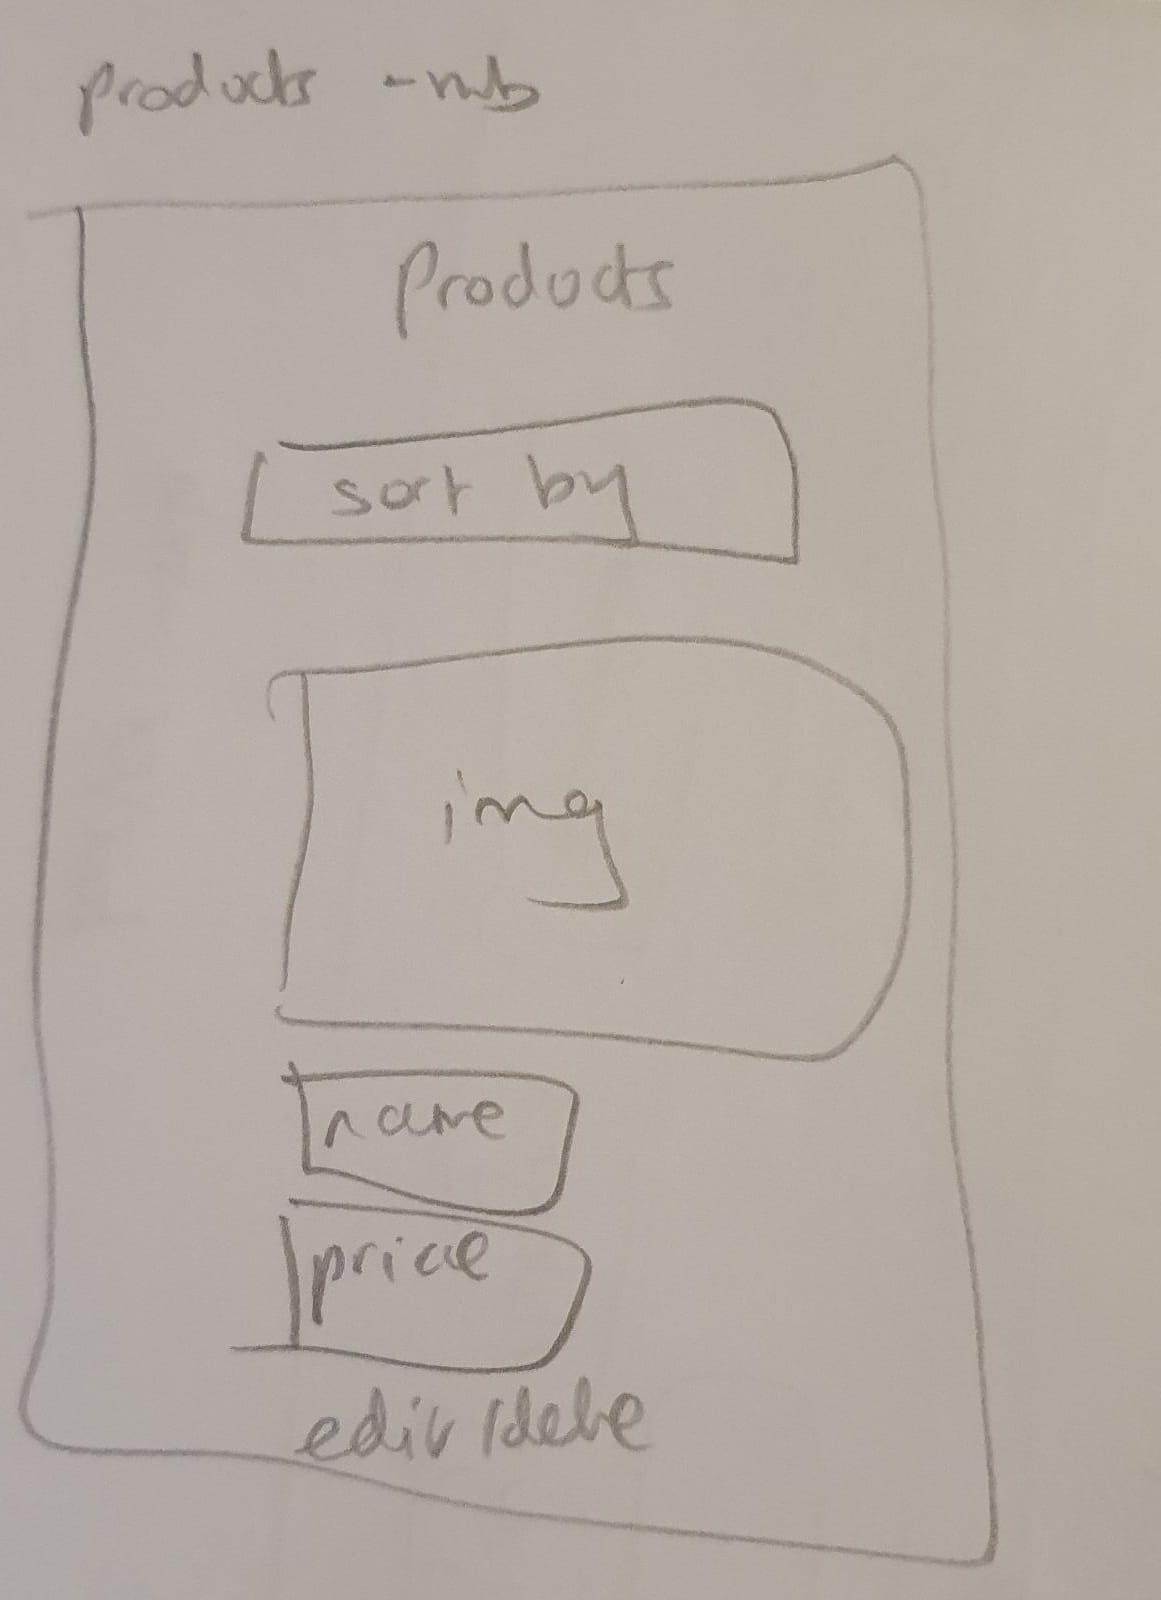 products - mb
Products
sort by
img
name
price
edit / delete